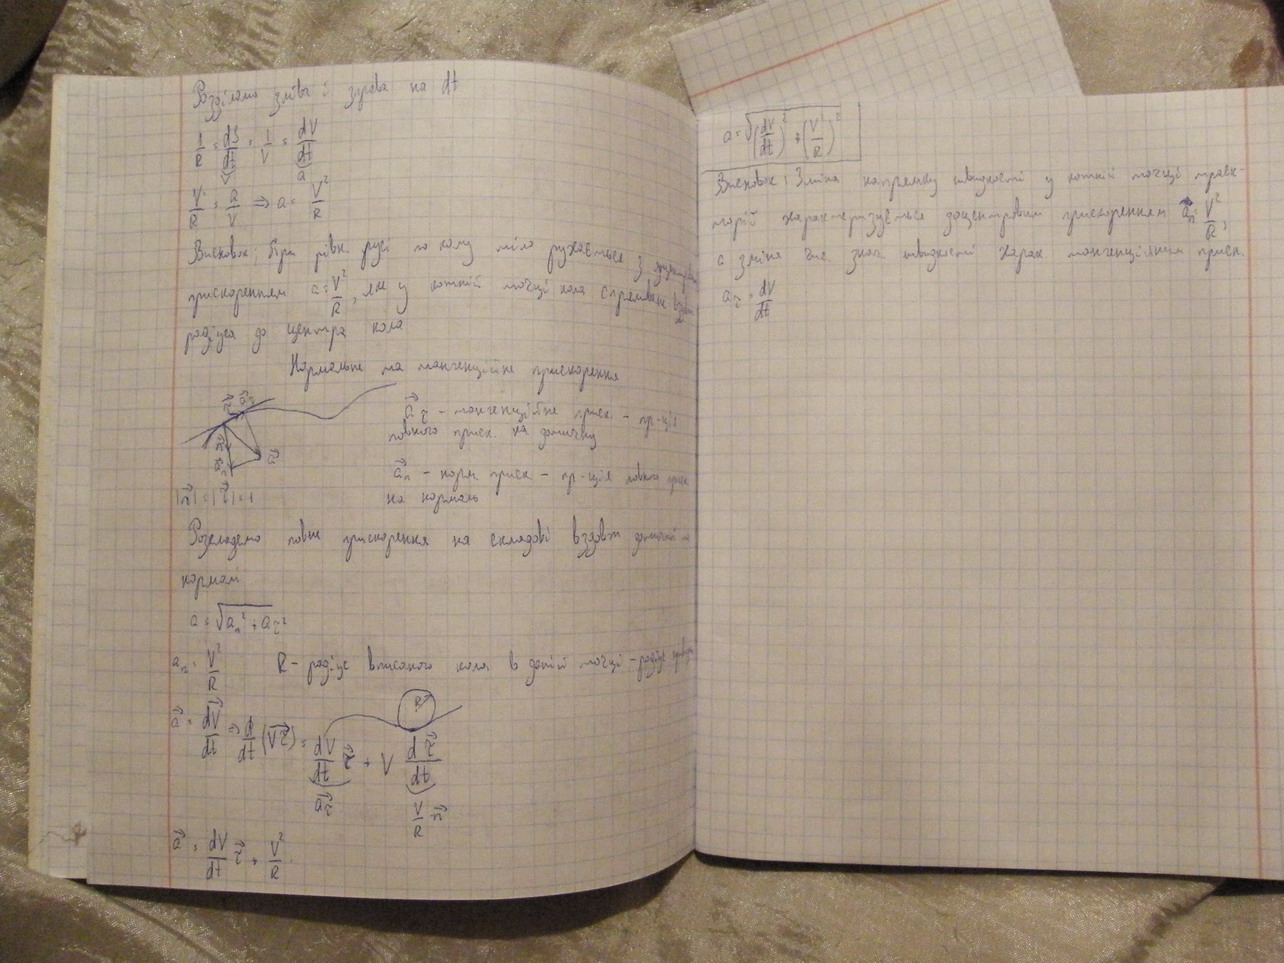 Розділимо зліва і справа на dt
1/R · dS/dt = 1/V · dV/dt
V
a
V/R = a/V ⇒ a = V²/R
Висновок: При рівн. русі по колу тіло рухається з доцентровим
прискоренням a = V²/R, яке у кожній точці кола спрямоване вздовж
радіуса до центра кола
Нормальне та тангенційне прискорення
τ⃗ a⃗τ
a⃗τ – тангенційне приск. – пр-ція
повного приск. на дотичну
n⃗
a⃗n a⃗
a⃗n – норм приск – пр-ція повного приск
на нормаль
|n⃗| = |τ⃗| = 1
Розкладемо повне прискорення на складові вздовж дотичної і
нормалі
a = √(an² + aτ²)
an = V²/R R – радіус вписаного кола в даній точці – радіус
R
a⃗ = dV⃗/dt = d/dt (Vτ⃗) = dV/dt τ⃗ + V dτ⃗/dt
a⃗τ V/R n⃗
a⃗ = dV/dt τ⃗ + V²/R
a = √((dV/dt)² + (V²/R)²)
Висновок: Зміна напрямку швидкості у кожній точці траєк-
торії характеризується доцентровим прискоренням a⃗n = V²/R,
а зміна чис. знач швидкості харак тангенційним приск.
aτ = dV/dt